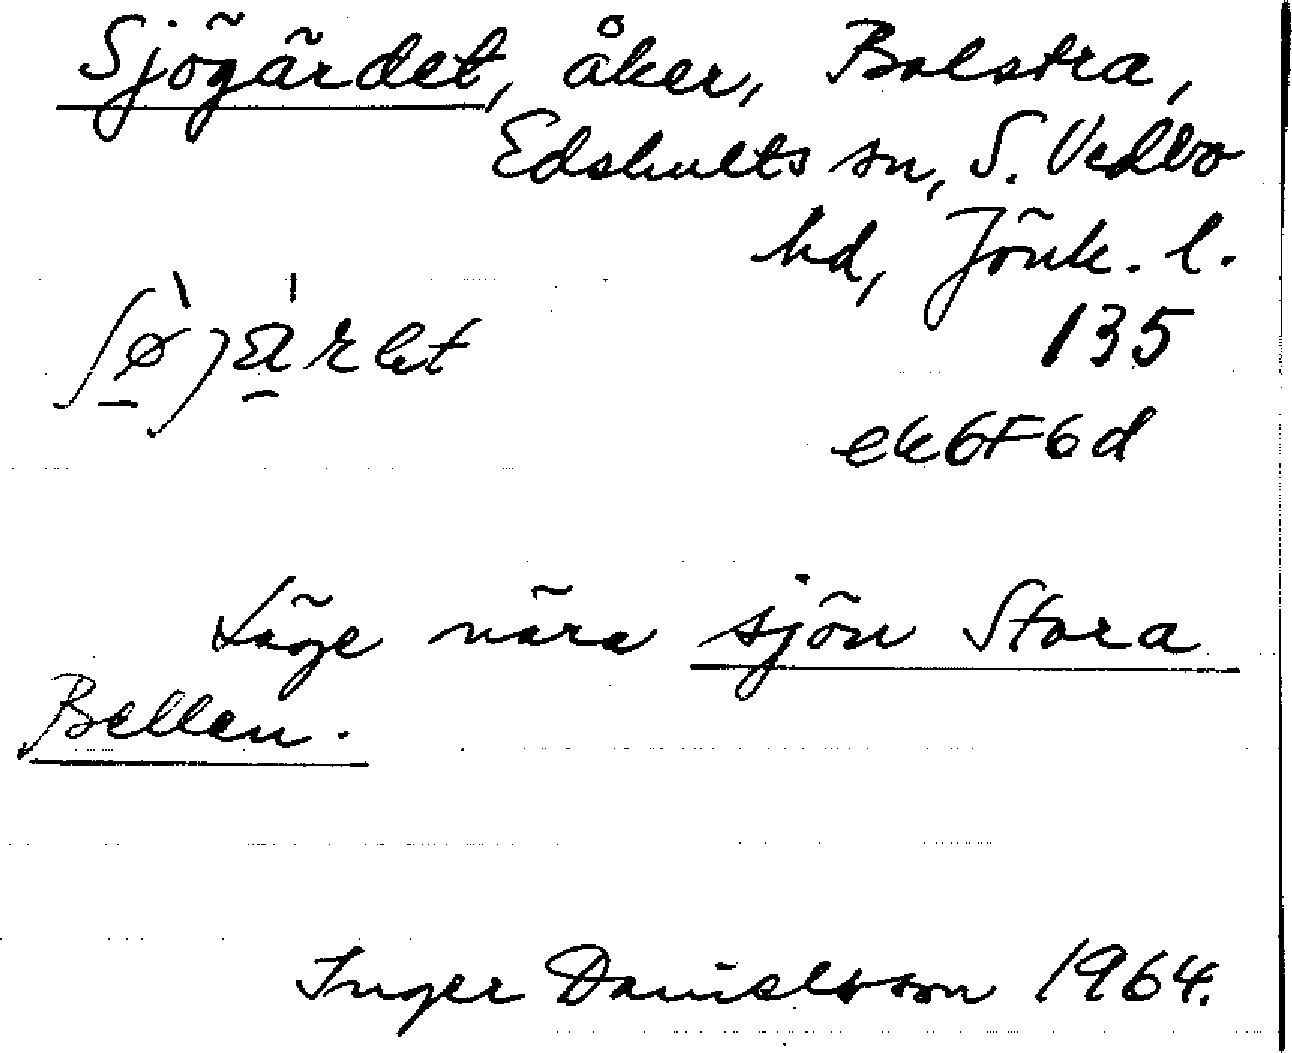 Sjögärdet, åker, Bolstra,
Edshults sn, S. Vedbo
hd, Jönk. l.
135
ek6F6d
Läge nära sjön Stora
Bellen.
Inger Danielsson 1964.